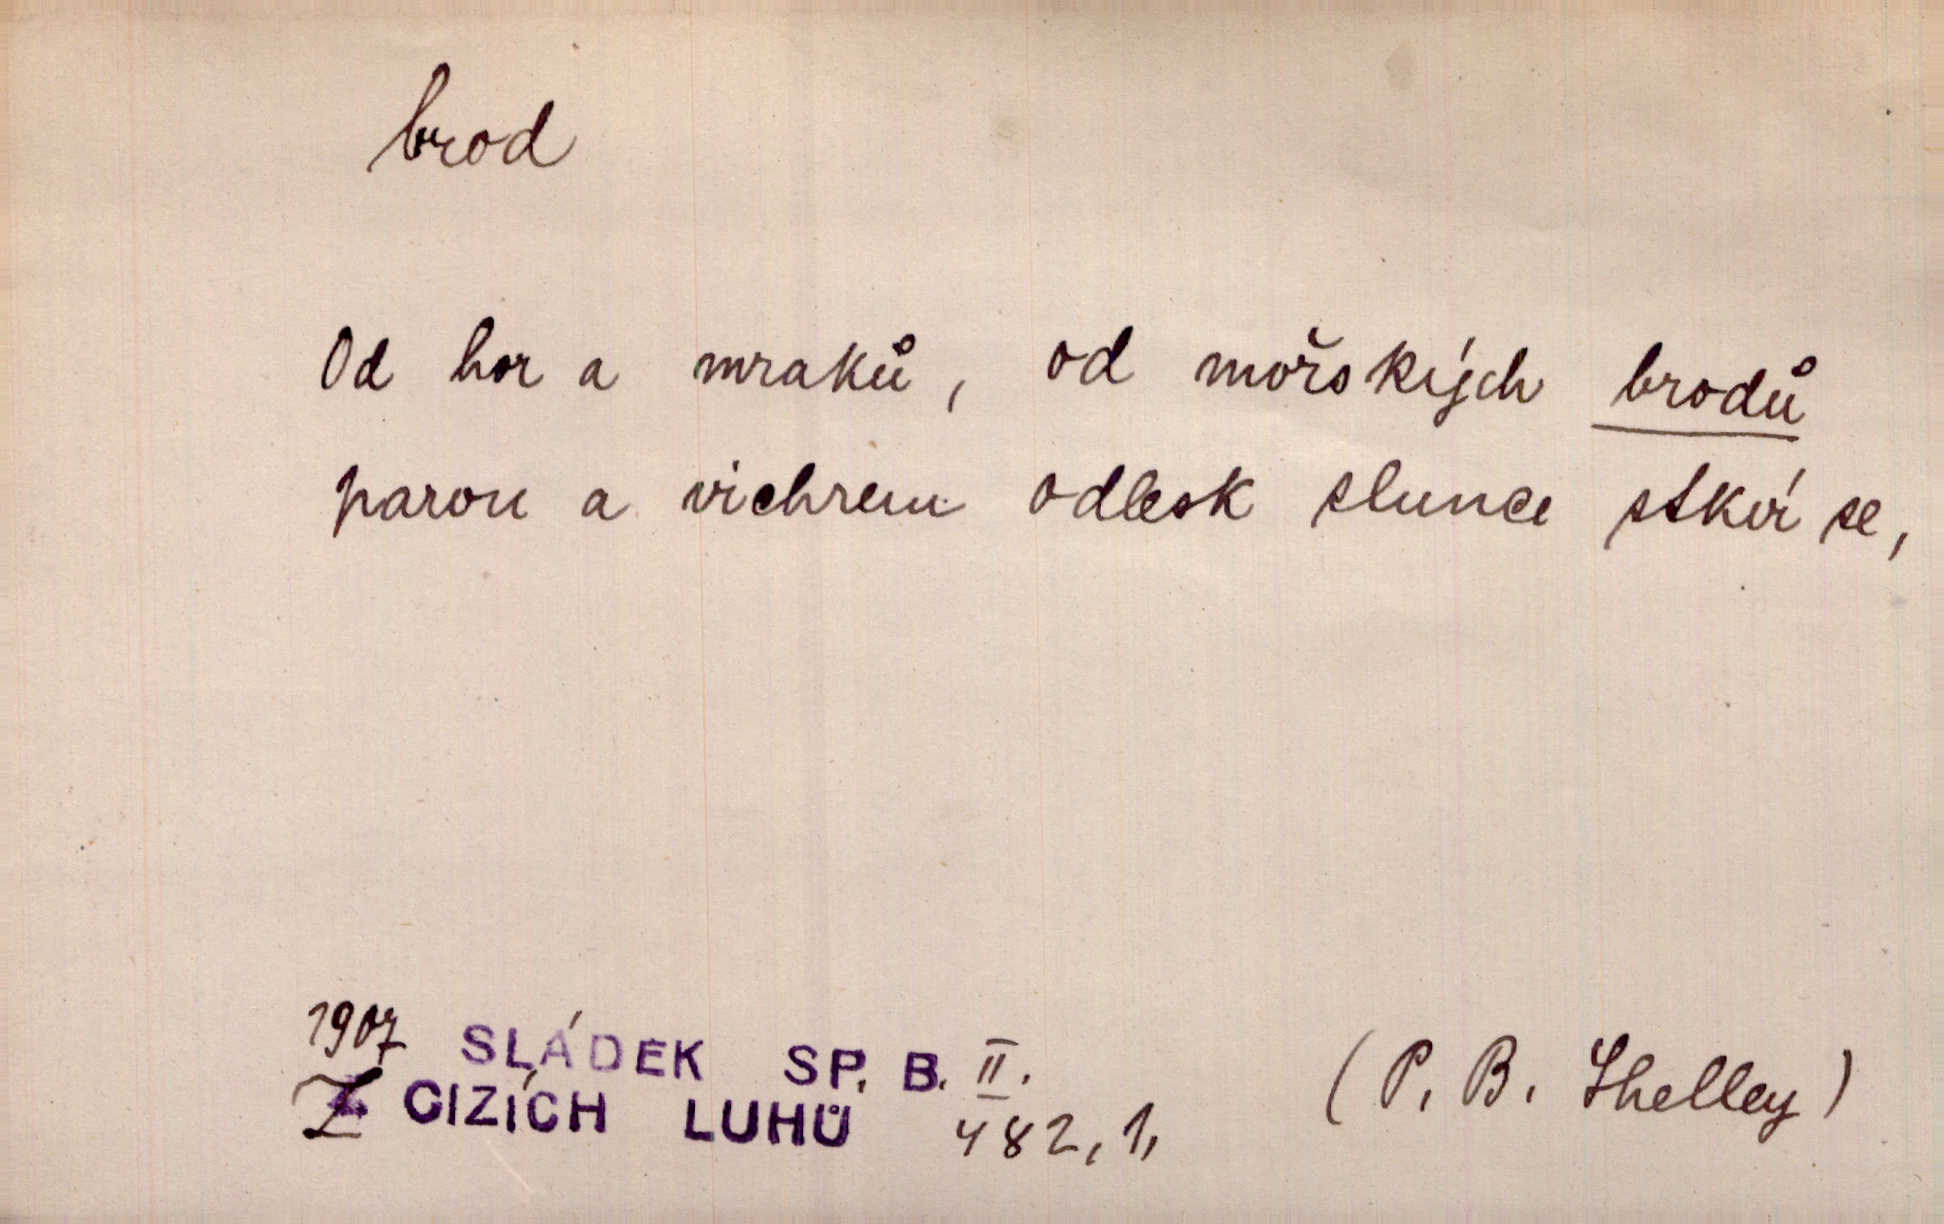 brod
Od hor a mraků, od mořských brodů
parou a vichrem odlesk slunce stkví se,
1907 SLÁDEK SP. B. II.
Z CIZÍCH LUHŮ 482, 1,
(P. B. Shelley)